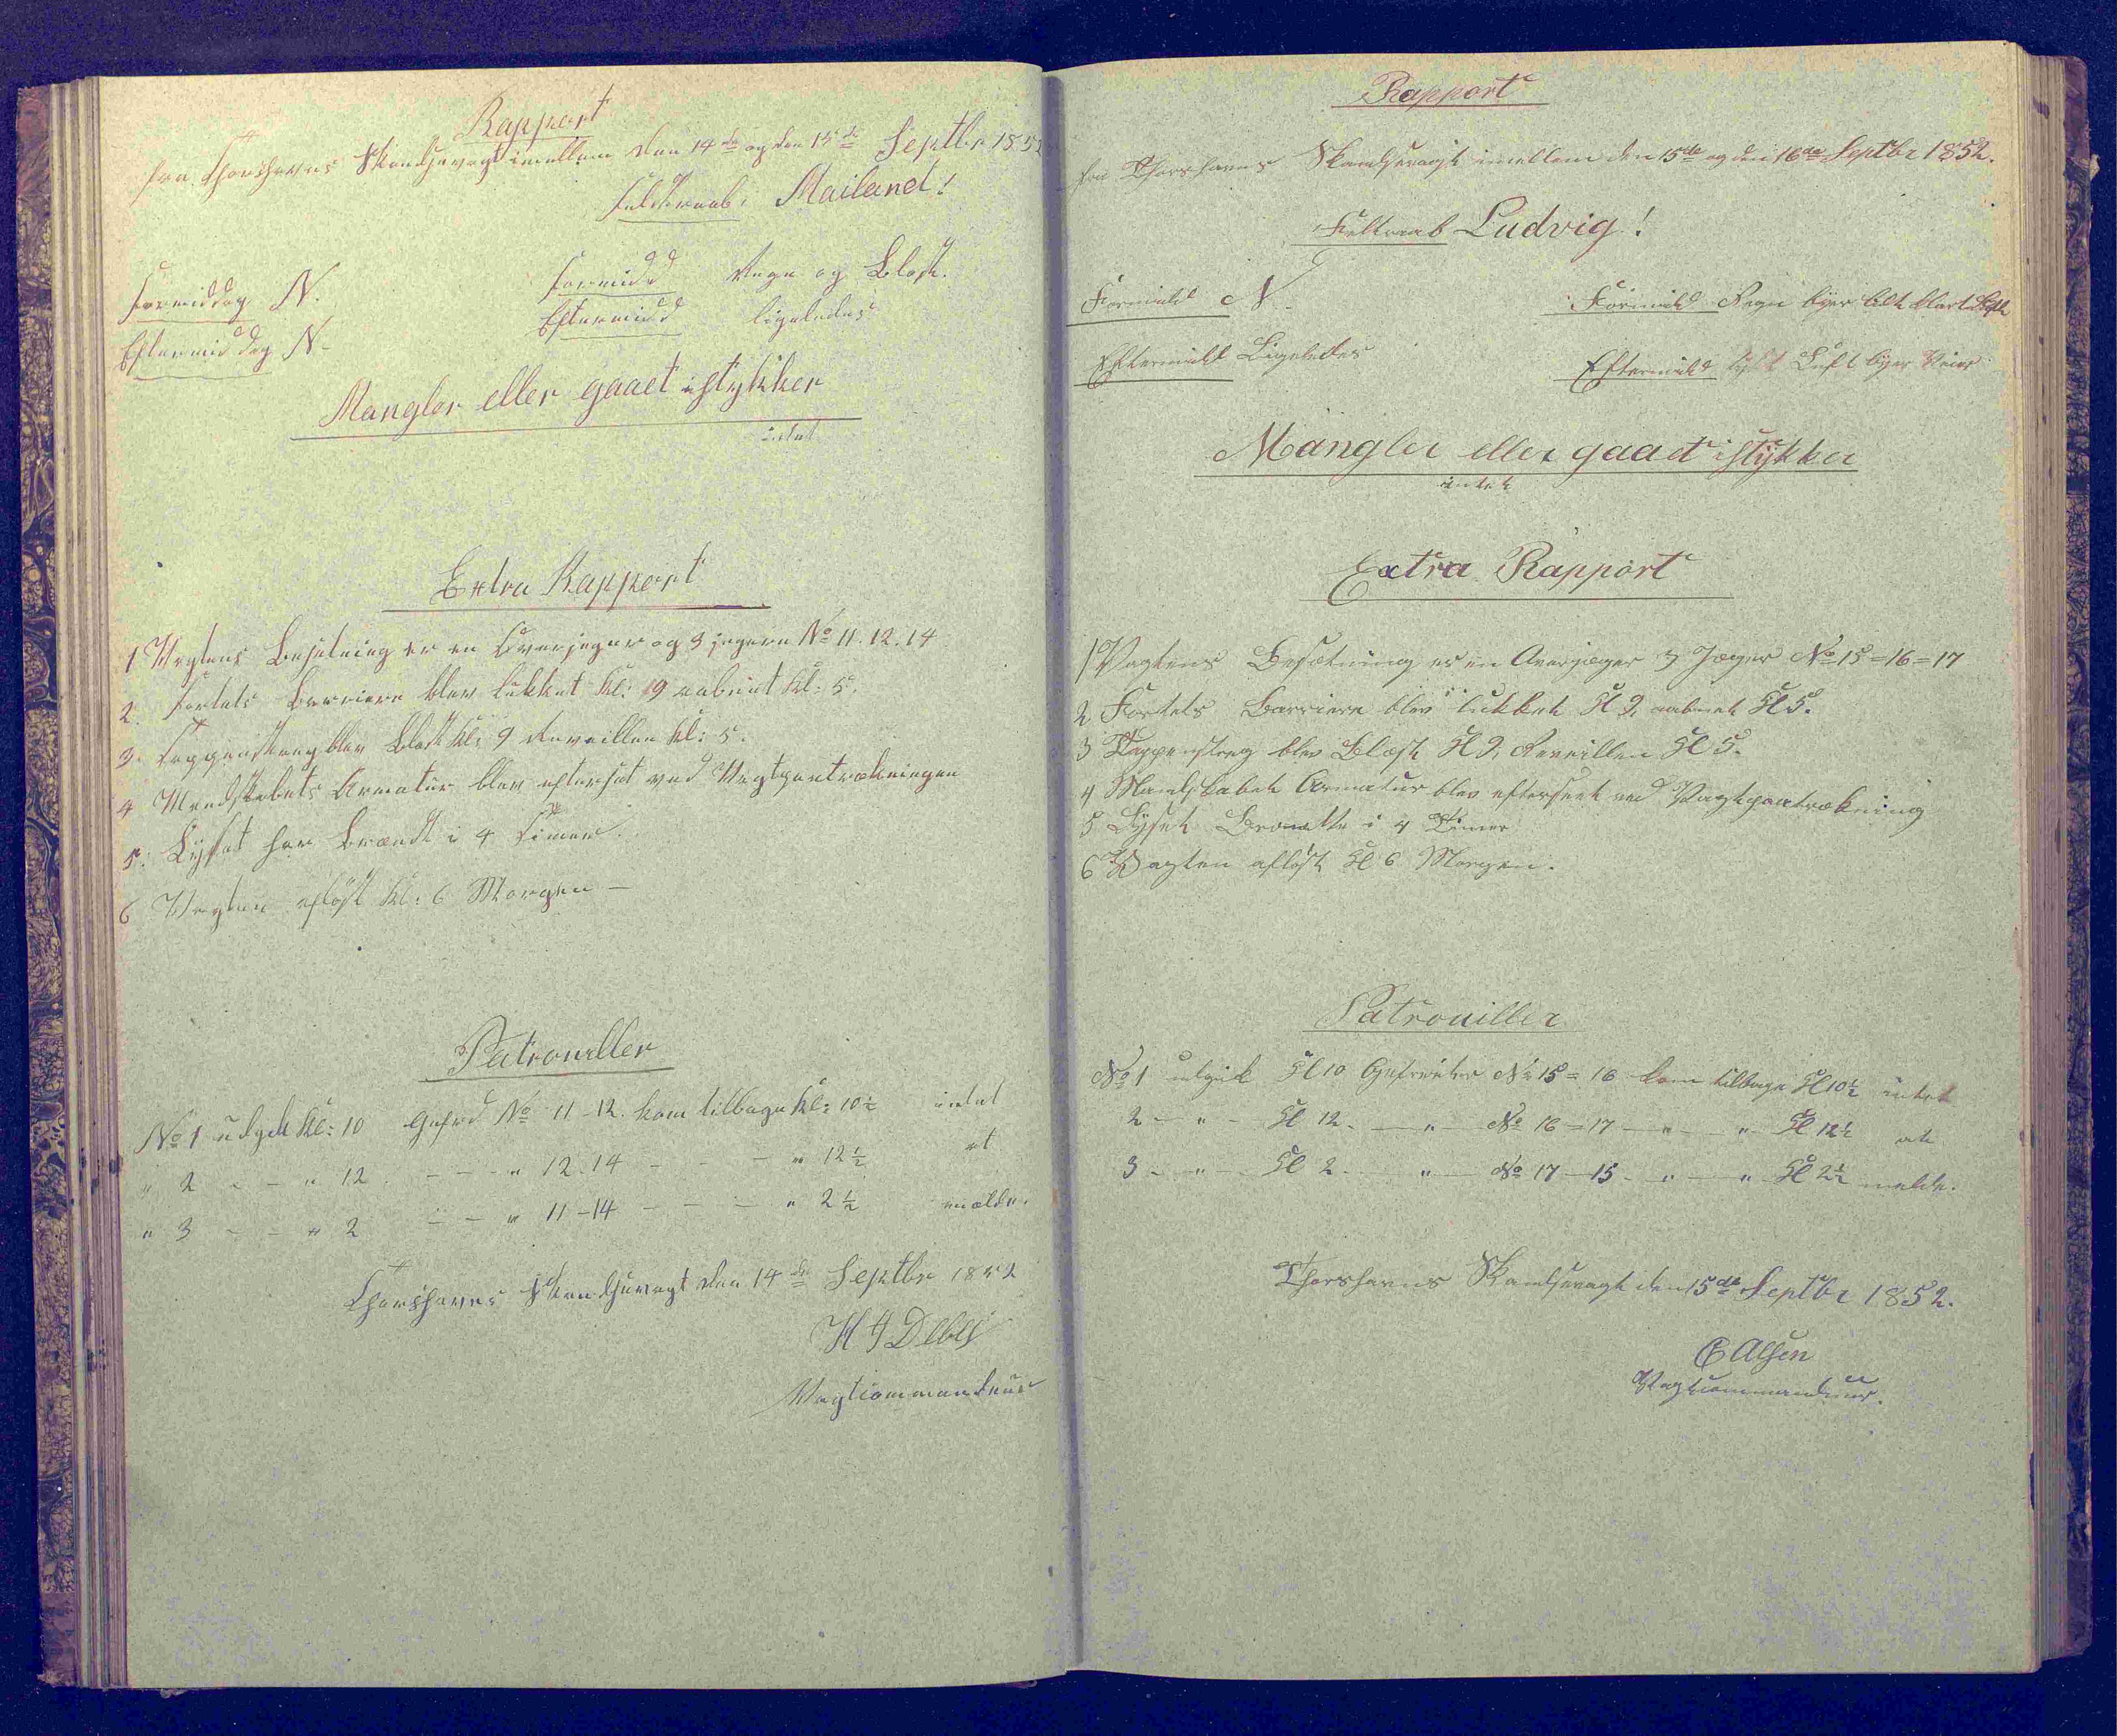 Rapport
fra Thorshavns Skandsevagt imellem den 14de og den 15de Septbr 1852
Feldtraab: Mailand!
Formiddag N. Formidd Regn og Blæst.
Eftermiddag N- Eftermidd ligeledes
Mangler eller gaaet istykker
intet
Extra Rapport
1 Vagtens Besætning er en Overjæger og 3 jægere No 11. 12. 14
2. Fortets Barriere blev lukket Kl: 9 aabnet Kl: 5.
3. Tappenstreg blev Blæst Kl: 9 Reveillen Kl: 5.
4 Mandskabets Armatur blev efterset ved Vagtpaatrækningen
5. Lyset har Brændt i 4 Timer.
6 Vagten afløst Kl: 6 Morgen –
Patrouiller
No 1 udgik Kl: 10 Gefrd No 11-12. kom tilbage Kl: 10½ intet
" 2 - - " 12. - - " 12.14 - - - " 12½ at
" 3 - - " 2 - - " 11-14 - - - " 2½ melde.
Thorshavns Skandsevagt den 14de Septbr 1852
H J Debes
Vagtcommandeur
Rapport
fra Thorshavns Skandsevagt imellem den 15de og den 16de Septbr 1852.
Feltraab Ludvig!
Formidd N. Formidd Regn byer lidt klart
Eftermidd Ligeledes Eftermidd tyk Luft byer Veier
Mangler eller gaaet istykker
intet
Extra Rapport
1 Vagtens Besætning er en Overjæger 3 Jæger No 15=16=17
2 Fortets Barriere blev lukket Kl 9, aabnet Kl 5.
3 Tappenstreg blev Blæst Kl 9, Reveillen Kl 5.
4 Mandskabet Armatur blev efterseet ved Vagtpaatrækning
5 Lyset Brændte i 4 Timer
6 Vagten afløst Kl 6 Morgen.
Patrouiller
No 1 udgik Kl 10 Gefreiter No 15=16 kom tilbage Kl 10½ intet
2 - " - Kl 12. - " - No 16=17 - " - " - Kl 12½ at
3 - " - Kl 2. - " - No 17-15 - " - " - Kl 2½ melde.
Thorshavns Skandsevagt den 15de Septbr 1852.
Olsen
Vagtcommandeur.